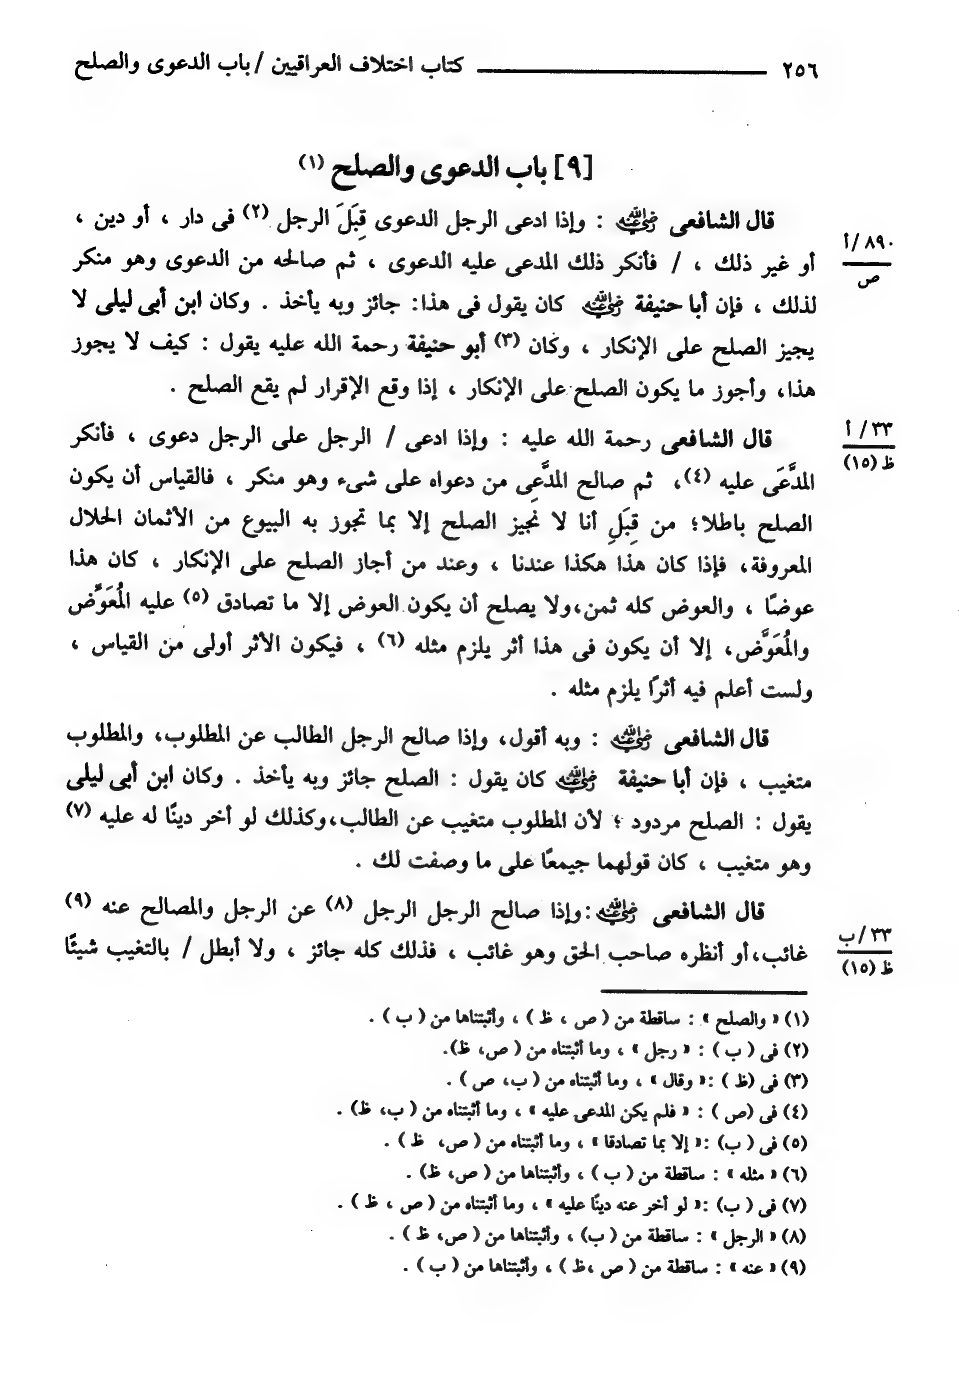 ٢٥٦ كتاب اختلاف العراقيين / باب الدعوى والصلح
[٩] باب الدعوى والصلح (١)
قال الشافعى رضي الله عنه : وإذا ادعى الرجل الدعوى قِبَلَ الرجل (٢) فى دار ، أو دين ،
٨٩٠/أ
ص
أو غير ذلك ، / فأنكر ذلك المدعى عليه الدعوى ، ثم صالحه من الدعوى وهو منكر
لذلك ، فإن أبا حنيفة رضي الله عنه كان يقول فى هذا: جائز وبه يأخذ . وكان ابن أبى ليلى لا
يجيز الصلح على الإنكار ، وكان (٣) أبو حنيفة رحمة الله عليه يقول : كيف لا يجوز
هذا، وأجوز ما يكون الصلح على الإنكار ، إذا وقع الإقرار لم يقع الصلح .
قال الشافعى رحمة الله عليه : وإذا ادعى / الرجل على الرجل دعوى ، فأنكر
٣٣/ أ
ظ (١٥)
المدَّعَى عليه (٤)، ثم صالح المدَّعِى من دعواه على شىء وهو منكر ، فالقياس أن يكون
الصلح باطلا؛ من قِبَلِ أنا لا نجيز الصلح إلا بما تجوز به البيوع من الأثمان الحلال
المعروفة، فإذا كان هذا هكذا عندنا ، وعند من أجاز الصلح على الإنكار ، كان هذا
عوضًا ، والعوض كله ثمن،ولا يصلح أن يكون العوض إلا ما تصادق (٥) عليه المُعَوَّض
والمُعَوِّض، إلا أن يكون فى هذا أثر يلزم مثله (٦) ، فيكون الأثر أولى من القياس ،
ولست أعلم فيه أثرًا يلزم مثله .
قال الشافعى رضي الله عنه : وبه أقول، وإذا صالح الرجل الطالب عن المطلوب، والمطلوب
متغيب ، فإن أبا حنيفة رضي الله عنه كان يقول : الصلح جائز وبه يأخذ . وكان ابن أبى ليلى
يقول : الصلح مردود ؛ لأن المطلوب متغيب عن الطالب،وكذلك لو أخر دينًا له عليه (٧)
وهو متغيب ، كان قولهما جيمعًا على ما وصفت لك .
قال الشافعى رضي الله عنه :وإذا صالح الرجل الرجل (٨) عن الرجل والمصالح عنه (٩)
٣٣/ب
ظ (١٥)
غائب،أو أنظره صاحب الحق وهو غائب ، فذلك كله جائز ، ولا أبطل / بالتغيب شيئًا
(١) « والصلح » : ساقطة من ( ص ، ظ ) ، وأثبتناها من ( ب ) .
(٢) فى ( ب ) : « رجل » ، وما أثبتناه من ( ص، ظ).
(٣) فى (ظ ) :« وقال » ، وما أثبتناه من ( ب، ص ) .
(٤) فى (ص ) : « فلم يكن المدعى عليه » ، وما أثبتناه من ( ب، ظ) .
(٥) فى ( ب) :« إلا بما تصادقا » ، وما أثبتناه من ( ص، ظ ) .
(٦) « مثله » : ساقطة من ( ب ) ، وأثبتناها من ( ص، ظ) .
(٧) فى ( ب) :« لو أخر عنه دينًا عليه » ، وما أثبتناه من ( ص ، ظ ) .
(٨) « الرجل » : ساقطة من ( ب) ، وأثبتناها من ( ص، ظ ) .
(٩) « عنه » : ساقطة من ( ص ،ظ ) ، وأثبتناها من ( ب ) .